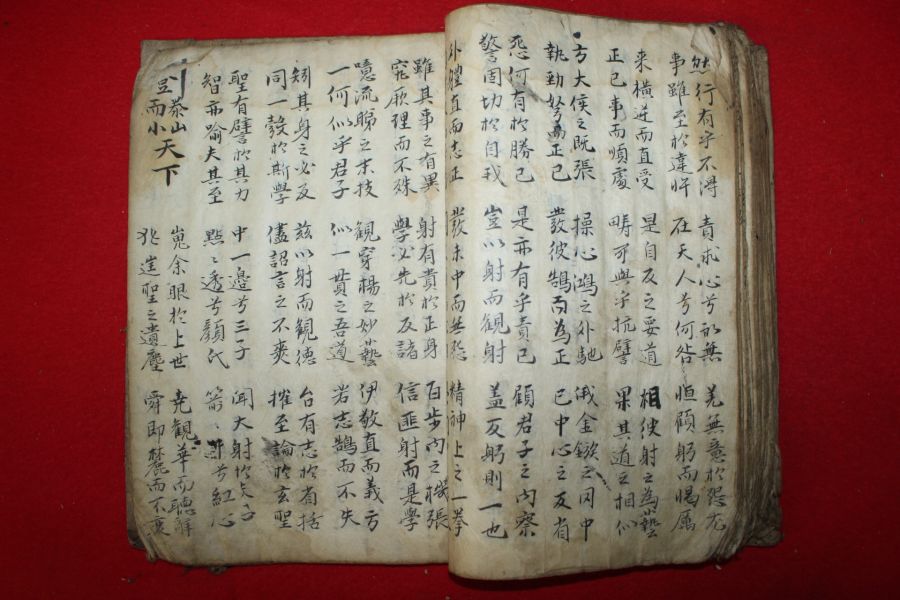 然行有乎不得 責求心兮亦無 羌無意於怨尤
事雖至於違忤 在天人兮何咎 恒顧躬而惕厲
来橫逆而直受 是自反之妥道 相彼射之為藝
正已事而順處 疇可與乎抗譬 果其道之相似
方大侯之既張 操心鴻之外馳 俄金鏃之閃中
執勁弩而正已 發彼鵠而為正 已中心之反省
怨何有於勝已 是亦有乎責已 顧君子之內察
警固切於自我 豈以射而觀射 盖反躬則一也
外體直而志正 發未中而無怨 精神上之一擧
雖其事之有異 射有貴於正身 百步內之機張
厥理而不殊 學必先於反諸 信匪射而是學
噫流睇之末技 觀穿楊之妙藝 伊敬直而義方
一何似乎君子 似一貫之吾道 若志鵠而不失
矧其身之必反 玆以射而觀德 台有志於省括
同一彀於斯學 儘詔言之不爽 摧至論於玄聖
聖有譬於其力 中一邊兮三子 闻大射於夫子
智亦喻夫其至 點〻透兮顔氏 箭〻兮紅心
泰山 嵬余眼於上世 堯觀華而聽辭
而小天下 聖之遺塵 舜即麓而不